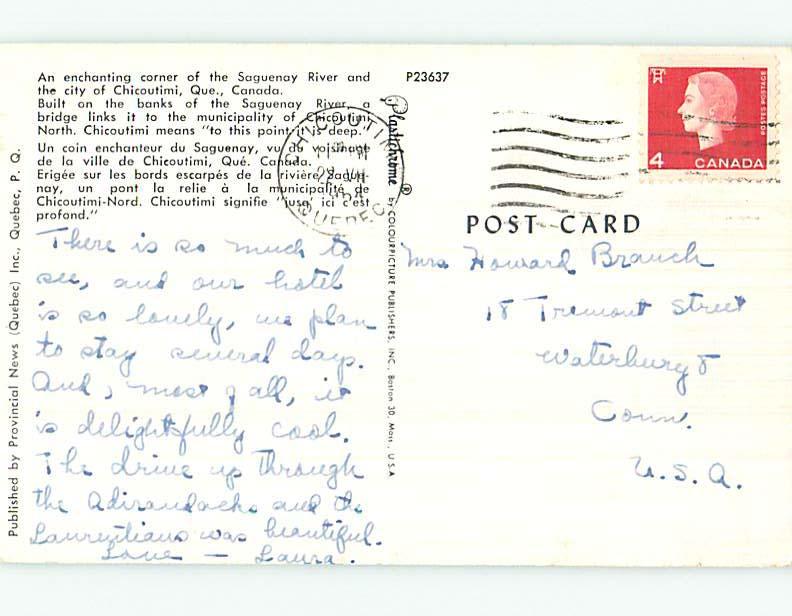 An enchanting corner of the Saguenay River and
the city of Chicoutimi, Que., Canada.
Built on the banks of the Saguenay River, a
bridge links it to the municipality of Chicoutimi
North. Chicoutimi means "to this point it is deep."
Un coin enchanteur du Saguenay, vu du voisinage
de la ville de Chicoutimi, Qué. Canada.
Erigée sur les bords escarpés de la rivière Sague-
nay, un pont la relie à la municipalité de
Chicoutimi-Nord. Chicoutimi signifie "jusq' ici c'est
profond."
There is so much to
see, and our hotel
is so lovely, we plan
to stay several days.
And, most of all, it
is delightfully cool.
The drive up through
the Adirondacks and the
Laurentians was beautiful.
Love — Laura.
Published by Provincial News (Quebec) Inc., Quebec, P. Q.
P23637
Plastichrome ®
by COLOURPICTURE PUBLISHERS, INC., Boston 30, Mass., U.S.A.
CHICOUTIMI
QUEBEC
POSTES POSTAGE
4 CANADA
POST CARD
Mrs Howard Branch
18 Tremont Street
Waterbury 8
Conn.
U.S.A.